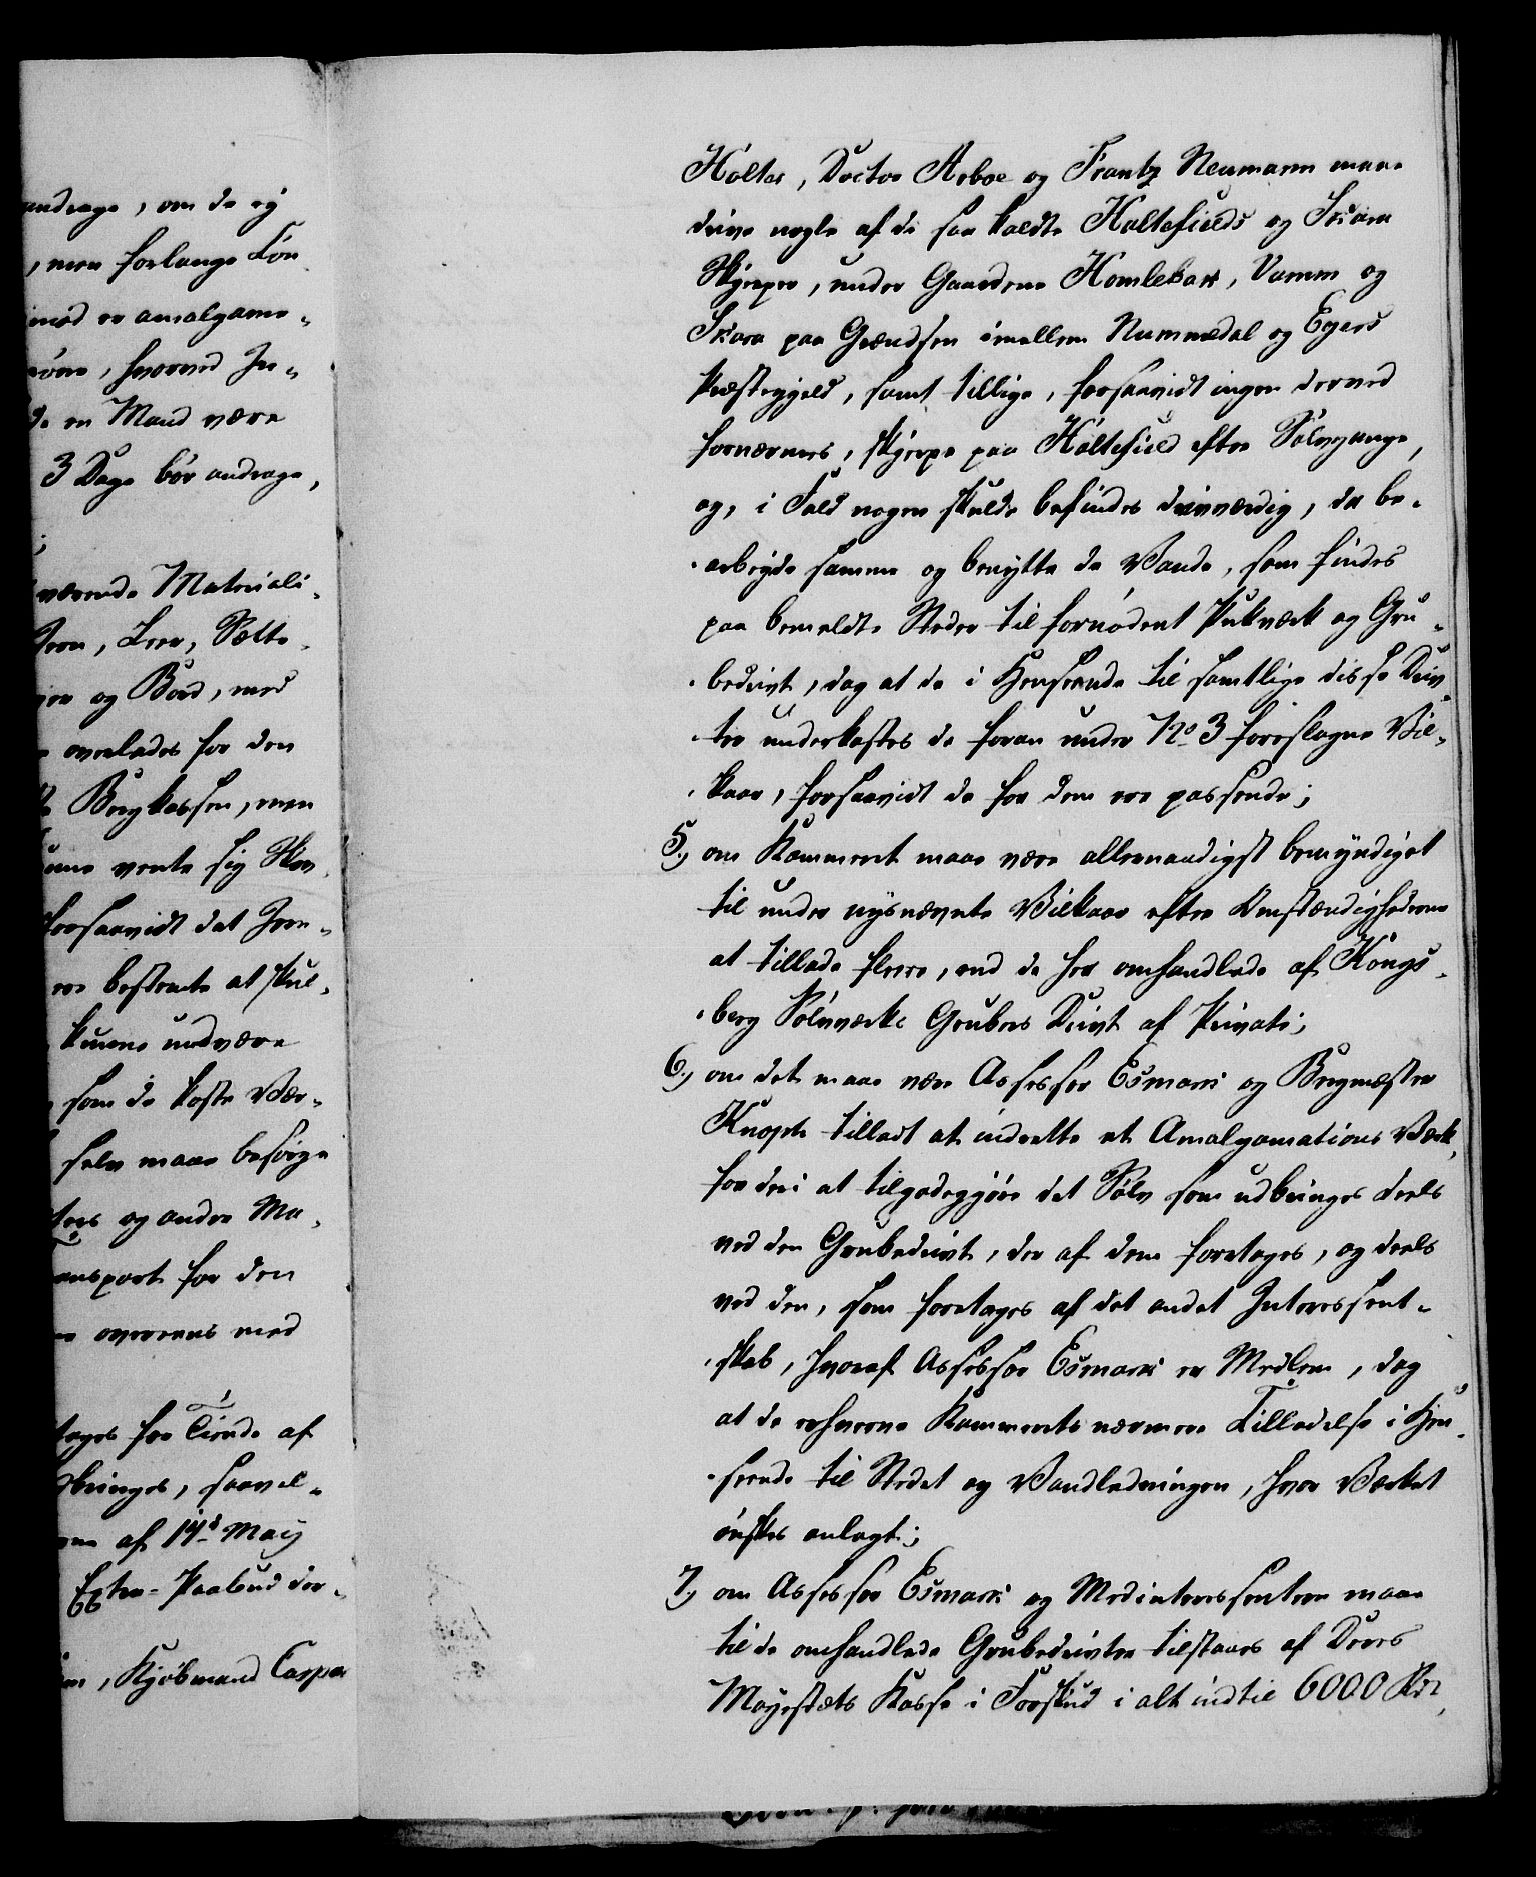 andrage, om de ej
, men forlange Løn
imod er amalgame-
hvorved In-
de en Mand være
3 Dage bør andrage,
værende Materiali-
Jern, Leer, Sætte-
og Bord, med
overlades for den
Bergkassen, men
vente sig Skov
forsaavidt det Jern-
ere bestemte at skul-
kunne undvære
som de koste Vær-
selv maae besørge
og andre Ma-
ansport for den
overeens med
tages fra Tiende af
bringes, saavel-
af 14d May
Extra-Paabud der-
, Kjøbmand Casper
Holter, Doctor Arboe og Frantz Neumann maae
drive nogle af de saa kaldte Holtefields og Skara
Skjerper, under Gaardene Homlebæk, Vamm og
Skara paa Grændsen imellem Nummedal og Egers
Præstegjeld, samt tillige, forsaavidt ingen derved
fornærmes, skjerpe paa Holtefield efter Sølvgange,
og, i Fald nogen skulde befindes drivværdig, da be-
arbejde samme og benytte de Vande, som findes
paa bemeldte Steder til fornødent Pukværk og Gru-
bedrivt, dog at de i Henseende til samtlige disse Driv-
ter underkastes de foran under No 3 foreslagne Vil-
kaar, forsaavidt de for dem ere passende;
5.) om Kammeret maae være allernaadigst bemyndiget
til under nysnævnte Vilkaar efter Omstændighederne
at tillade flere, end de her omhandlede af Kongs-
berg Sølvværks Grubers Drivt af Private;
6.) om det maae være Assessor Esmark og Bergmester
Knoph tilladt at indrette et Amalgamations Værk,
for deri at tilgodegjøre det Sølv som udbringes deels
ved den Grubedrivt, der af dem foretages, og deels
ved den, som foretages af det andet Interessent-
skab, hvoraf Assessor Esmark er Medlem, dog
at de erhverve Kammerets nærmere Tilladelse i Hen-
seende til Stedet og Vandledningen, hvor Værket
ønskes anlagt;
7.) om Assessor Esmark og Medinteressentere maae
til de omhandlede Grubedrivter tilstaaes af Deres
Majestæts Kasse i Forskud i alt indtil 6000 Rdr,